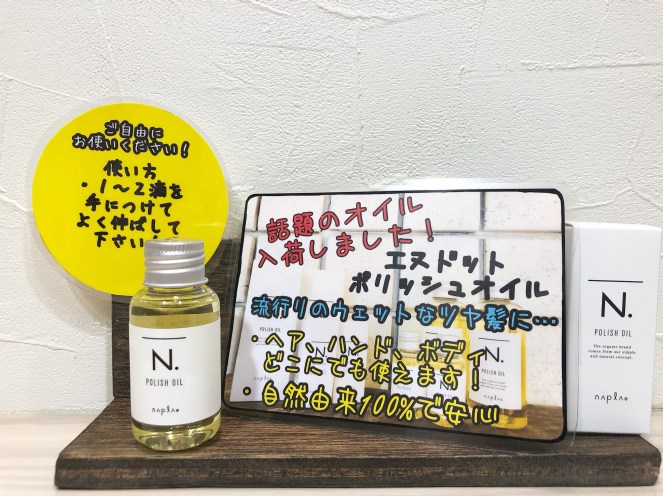 ご自由に
お使いください！
使い方
・1〜2滴を
手につけて
よく伸ばして
下さい
N.
POLISH OIL
napla
話題のオイル
入荷しました！
エヌドット
ポリッシュオイル
流行りのウェットなツヤ髪に…
・ヘア、ハンド、ボディ
どこにでも使えます！
・自然由来100%で安心
N.
POLISH OIL
The organic brand
comes from our simple
and natural concept.
napla